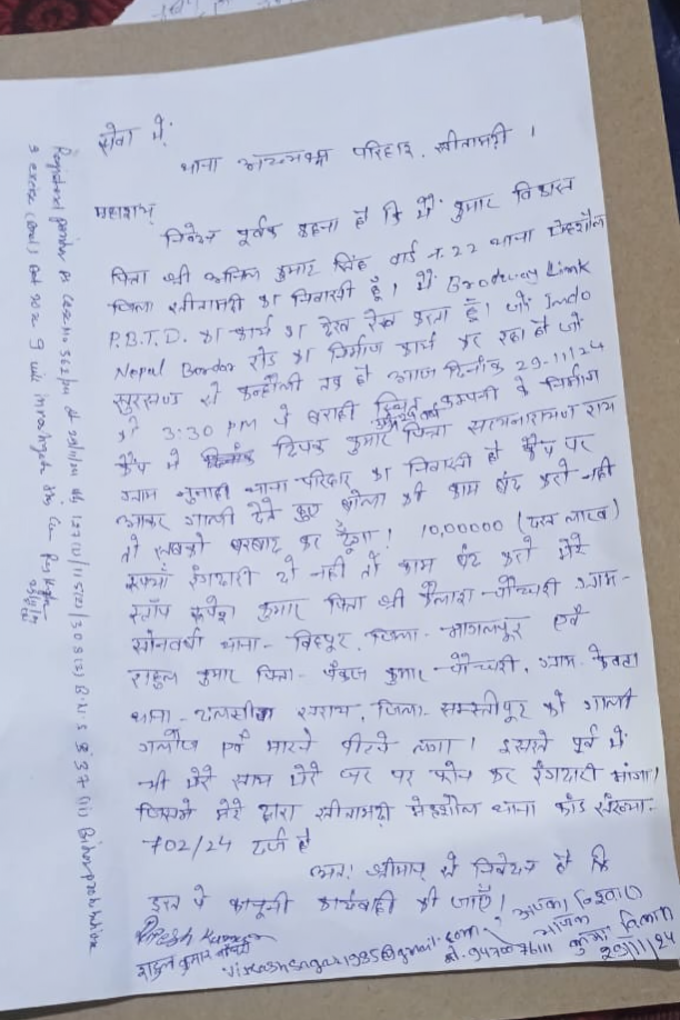 सेवा में,
थाना अध्यक्ष परिहार, सीतामढ़ी ।
महाशय,
निवेदन पूर्वक कहना है कि मैं कुमार विकास
पिता श्री कुमार सिंह वार्ड न. 22 थाना मेहसौल
जिला सीतामढ़ी का निवासी हूँ। मैं Brodway Link
P.B.T.D. का कार्य का देख रेख करता हूँ। जो Indo
Nepal Border रोड का निर्माण कार्य कर रहा है जो
सुरसण्ड से कन्हौली तक है आज दिनांक 29-11/24
को 3:30 PM में बराही स्थित कम्पनी के निर्माण
कैंप में दिपक कुमार पिता सत्यनारायण राय
ग्राम थाना परिहार का निवासी है कैंप पर
आकर गाली देते हुए बोला की काम बंद करो नही
तो सबको बरबाद कर दूँगा! 10,00000 (दस लाख)
रूपयाँ रंगदारी दो नही तो काम बंद करो मेरे
स्टॉप कुमार पिता श्री कैलाश चौधरी ग्राम-
सोनवर्षा थाना- बिहपुर, जिला- भागलपुर एवं
राहुल कुमार पिता- पंकज कुमार चौधरी, ग्राम- केवटा
थाना- दलसिंह सराय, जिला- समस्तीपुर को गाली
गलौज एवं मारने पीटने लगा। इससे पूर्व में
भी मेरे साथ मेरे घर पर फोन कर रंगदारी मांगा।
जिसमे मेरे द्वारा सीतामढ़ी मेहसौल थाना कांड संख्या-
702/24 दर्ज है
अतः श्रीमान् से निवेदन है कि
इस पे कानूनी कार्यवाही की जाएँ।
आपका विश्वासी
कुमार विकास
29/11/24
Kumar
राहुल कुमार चौधरी
Registered parihar Ps Case No 562/24 dt 29/11/24 127(2)/115(2)/308(2) B.N.S & 37 Bihar prohibition
& excise Act 2022 I will investigate this case
29/11/24